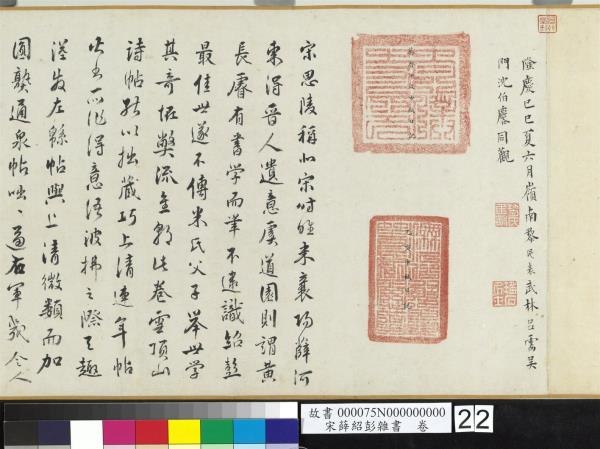 隆慶己巳夏六月嶺南黎民表武林呂需吳
門沈伯應同觀
宋思陵稱北宋時唯米襄陽薛河
東得晉人遺意虞道園則謂黃
長睿有書學而筆不逮識紹彭
最佳世遂不傳米氏父子舉世學
其奇怪弊流金朝此卷雲頂山
詩帖能以拙藏巧上清連年帖
得意活波拂之際天趣
溢發左綿帖與上清微類而加
圓熟通泉帖咄咄逼右軍幾令人
故書 000075N000000000
宋薛紹彭雜書 卷
22